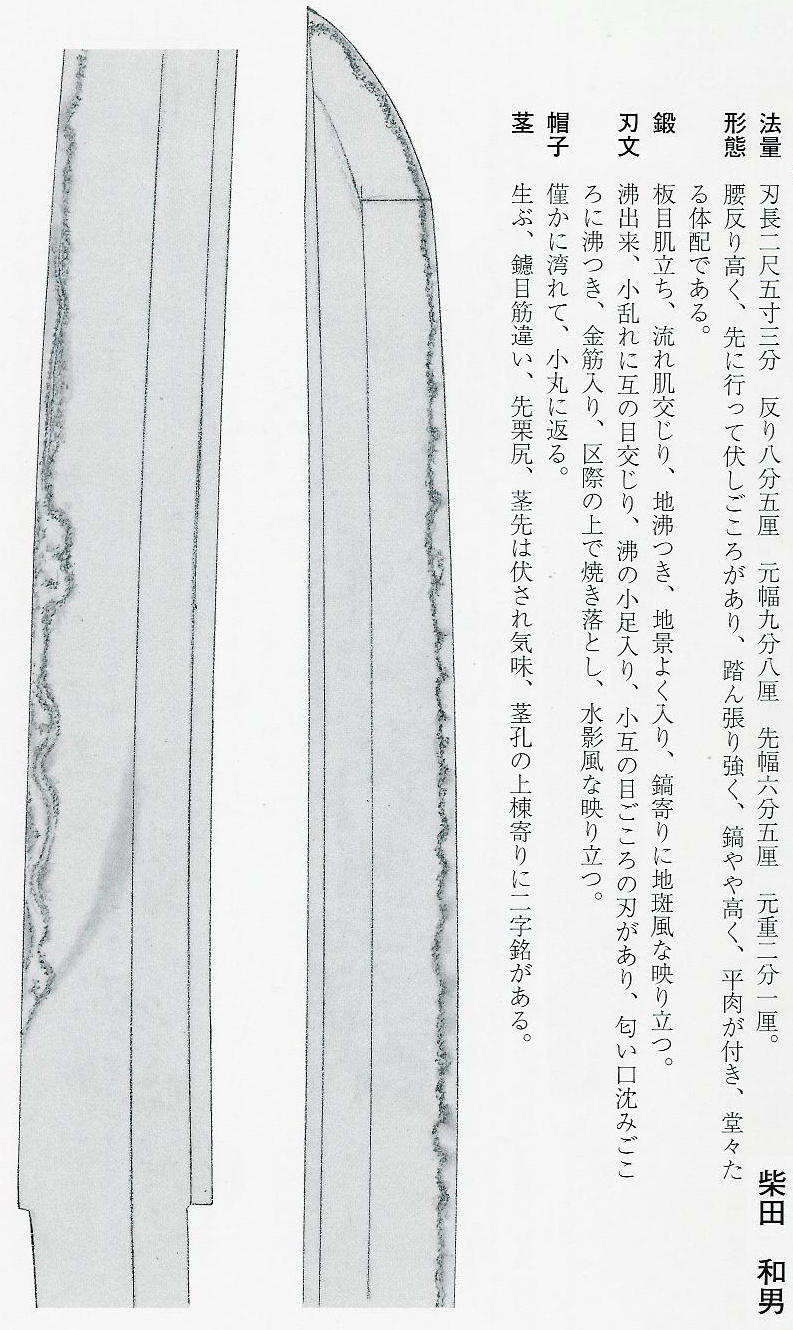 法量　刃長二尺五寸三分　反り八分五厘　元幅九分八厘　先幅六分五厘　元重二分一厘。
形態　腰反り高く、先に行って伏しごころがあり、踏ん張り強く、鎬やや高く、平肉が付き、堂々た
る体配である。
鍛　板目肌立ち、流れ肌交じり、地沸つき、地景よく入り、鎬寄りに地斑風な映り立つ。
刃文　沸出来、小乱れに互の目交じり、沸の小足入り、小互の目ごころの刃があり、匂い口沈みごこ
ろに沸つき、金筋入り、区際の上で焼き落とし、水影風な映り立つ。
帽子　僅かに湾れて、小丸に返る。
茎　生ぶ、鑢目筋違い、先栗尻、茎先は伏され気味、茎孔の上棟寄りに二字銘がある。
柴田　和男